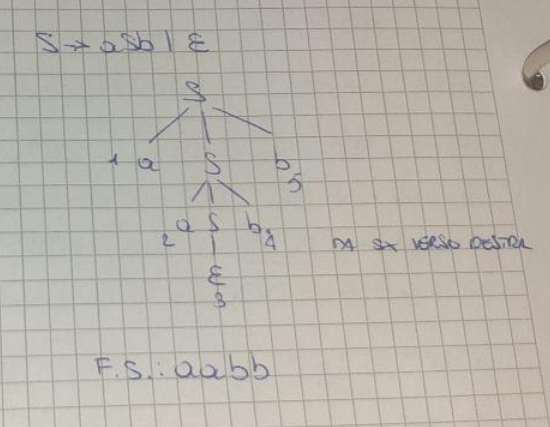 S → aSb | ε
S
1 a S b 5
2 a S b 4
DA SX VERSO DESTRA
ε
3
F.S.: aabb